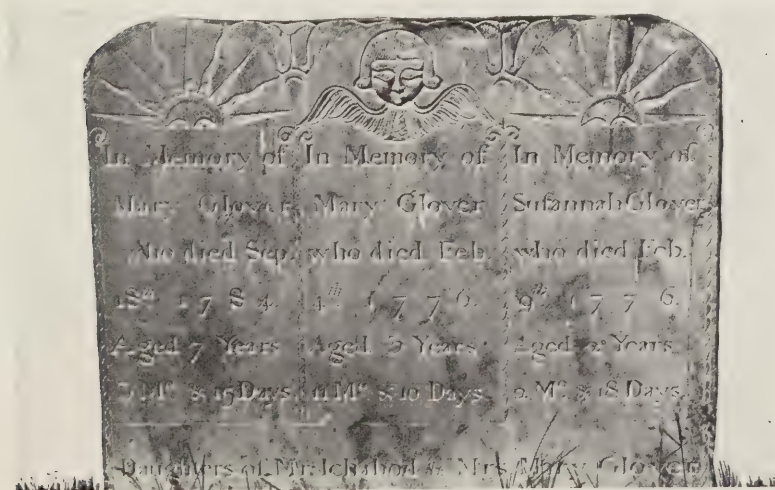 In Memory of
Mary Glover
who died Sep.
18th 1784.
Aged 7 Years
Mo. & 15 Days.
In Memory of
Mary Glover
who died Feb.
4th 1776.
Aged Years
11 Mo. & 10 Days.
In Memory of
Susannah Glover
who died Feb.
9th 1776.
Aged Years
9 Mo. & 18 Days.
Daughters of Mr. Ichabod & Mrs. Mary Glover